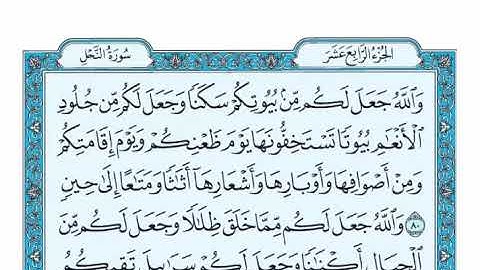 الجزء الرابع عشر
سورة النحل
وَاللَّهُ جَعَلَ لَكُم مِّنۢ بُيُوتِكُمْ سَكَنًا وَجَعَلَ لَكُم مِّن جُلُودِ
الْأَنْعَٰمِ بُيُوتًا تَسْتَخِفُّونَهَا يَوْمَ ظَعْنِكُمْ وَيَوْمَ إِقَامَتِكُمْ
وَمِنْ أَصْوَافِهَا وَأَوْبَارِهَا وَأَشْعَارِهَآ أَثَٰثًا وَمَتَٰعًا إِلَىٰ حِينٍ
٨٠ وَاللَّهُ جَعَلَ لَكُم مِّمَّا خَلَقَ ظِلَٰلًا وَجَعَلَ لَكُم مِّنَ
الْجِبَالِ أَكْنَٰنًا وَجَعَلَ لَكُمْ سَرَٰبِيلَ تَقِيكُمُ